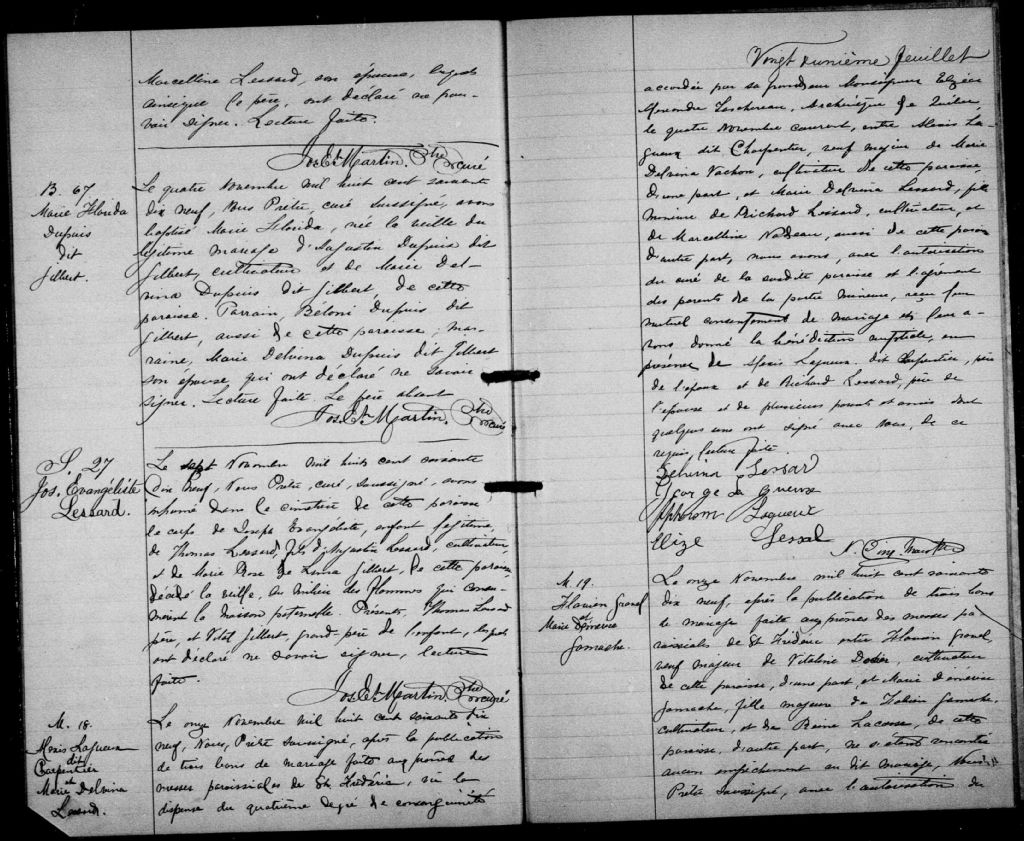 Marcelline Lessard, son épouse, lesquels
ainsi que le père, ont déclaré ne pou-
voir signer. Lecture faite.
Jos. Et. Martin, Ptre curé
B. 67
Marie Florida
Dupuis
dit
Gilbert.
Le quatre Novembre mil huit cent soixante
dix neuf, Nous Prêtre, curé soussigné, avons
baptisé Marie Florida, née la veille du
légitime mariage d'Augustin Dupuis dit
Gilbert, cultivateur et de Marie Del-
vina Dupuis dit Gilbert de cette
paroisse. Parrain, Béloni Dupuis dit
Gilbert, aussi de cette paroisse; mar-
raine, Marie Delvina Dupuis dit Gilbert
son épouse, qui ont déclaré ne savoir
signer. Lecture faite. Le père absent
Jos. Et. Martin, Ptre curé
S. 27
Jos. Evangéliste
Lessard.
Le sept Novembre mil huit cent soixante
dix neuf, Nous Prêtre, curé, soussigné, avons
inhumé dans le cimetière de cette paroisse
le corps de Joseph Evangéliste, enfant légitime,
de Thomas Lessard, fils d'Augustin Lessard, cultivateur,
et de Marie Rose de Lima Gilbert, de cette paroisse,
décédé la veille, au milieu des flammes qui consu-
mèrent la maison paternelle. Présents, Thomas Lessard
père, et Vital Gilbert, grand-père de l'enfant, lesquels
ont déclaré ne savoir signer, lecture
faite.
Jos. Et. Martin, Ptre curé
M. 18.
Alexis Lagueux
dit
Carpentier
et
Marie Delvina
Lessard.
Le onze Novembre mil huit cent soixante dix
neuf, Nous, Prêtre soussigné, après la publication
de trois bans de mariage faite aux prônes des
messes paroissiales de St. Frédéric, vu la
dispense du quatrième degré de consanguinité
Vingt deunième feuillet
accordée par sa grandeur Monseigneur Elzéar
Alexandre Taschereau, Archevêque de Québec,
le quatre Novembre courant, entre Alexis La-
gueux dit Charpentier, veuf majeur de Marie
Delvina Vachon, cultivateur de cette paroisse,
d'une part, et Marie Delvina Lessard, fille
mineure de Richard Lessard, cultivateur, et
de Marcelline Nadeau, aussi de cette paroisse
d'autre part, nous avons, avec l'autorisation
du curé de la susdite paroisse et l'agrément
des parents de la partie mineure, reçu leur
mutuel consentement de mariage et leur a-
vons donné la bénédiction nuptiale, en
présence de Alexis Lagueux dit Carpentier, père
de l'époux et de Richard Lessard, père de
l'épouse et de plusieurs parents et amis dont
quelques uns ont signé avec nous, de ce
requis, lecture faite.
Delvina Lessar
George La Gueux
Lagueux
Elize Lessal
M. 19.
Flavien Grenel
et
Marie
Gamache.
Le onze Novembre mil huit cent soixante
dix neuf, après la publication de trois bans
de mariage faite aux prônes des messes pa-
roissiales de St. Frédéric entre Flavien Grenel,
veuf majeur de Vitaline Dodier, cultivateur
de cette paroisse, d'une part et Marie
Gamache, fille majeure de Fabien Gamache,
cultivateur, et de Reine Lacasse, de cette
paroisse, d'autre part, ne s'étant rencontré
aucun empêchement au dit mariage, Nous,
Prêtre soussigné, avec l'autorisation du